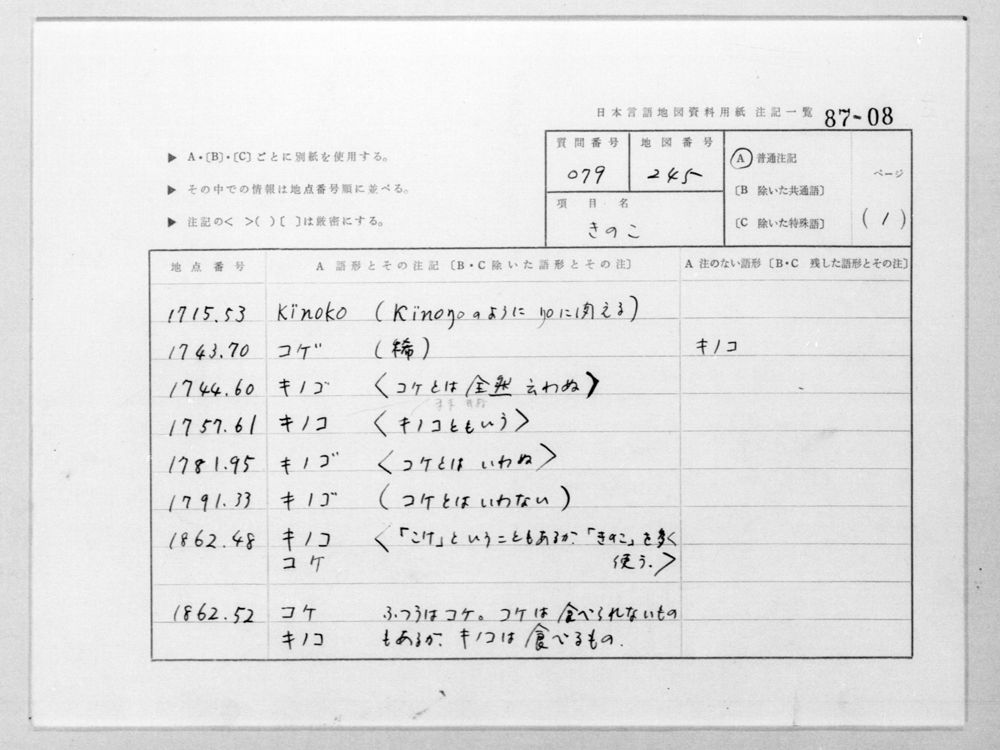 日本言語地図資料用紙 注記一覧 87-08
▶ A・〔B〕・〔C〕ごとに別紙を使用する。
▶ その中での情報は地点番号順に並べる。
▶ 注記の< >( )[ ]は厳密にする。
質問番号 地図番号
079 245
項目名
きのこ
Ⓐ 普通注記
〔B 除いた共通語〕
〔C 除いた特殊語〕
ページ
(1)
地点番号 A 語形とその注記〔B・C除いた語形とその注〕 A 注のない語形〔B・C 残した語形とその注〕
1715.53 Kïnoko (Kïnoŋoのように ŋoに聞える)
1743.70 コゲ (稀) キノコ
1744.60 キノゴ 〈コケとは全然云わぬ〉
1757.61 キノコ 〈キノコともいう〉
1781.95 キノゴ 〈コケとは いわぬ〉
1791.33 キノゴ (コケとはいわない)
1862.48 キノコ 〈「こけ」ということもあるが、「きのこ」を多く
コケ 使う.〉
1862.52 コケ ふつうはコケ。コケは食べられないもの
キノコ もあるが、キノコは食べるもの.